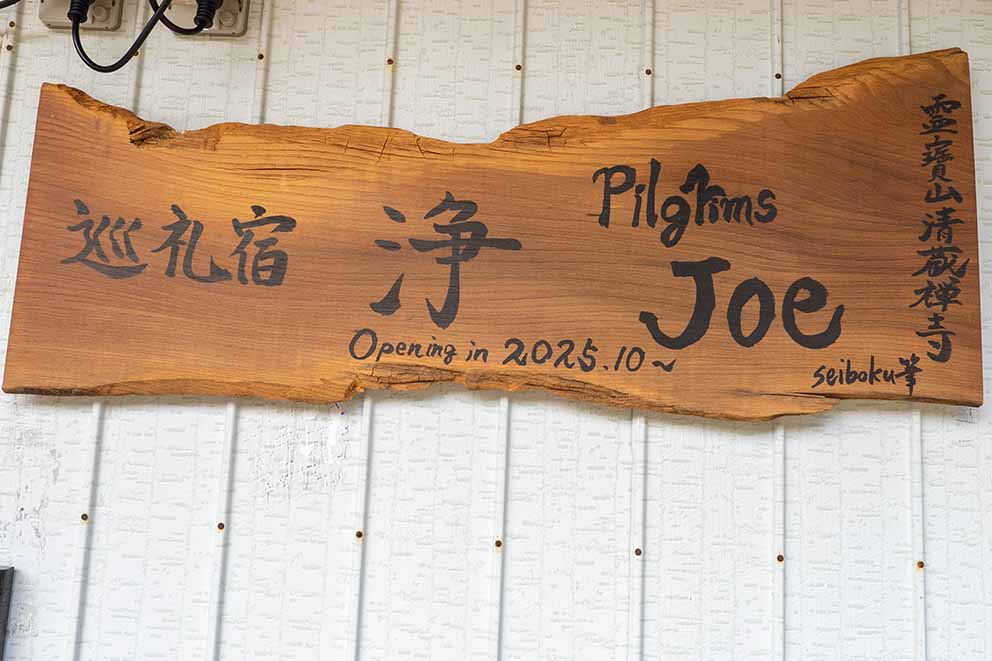 巡礼宿 浄
Pilgrims
Joe
Opening in 2025.10~
靈寶山清蔵禅寺
seiboku筆